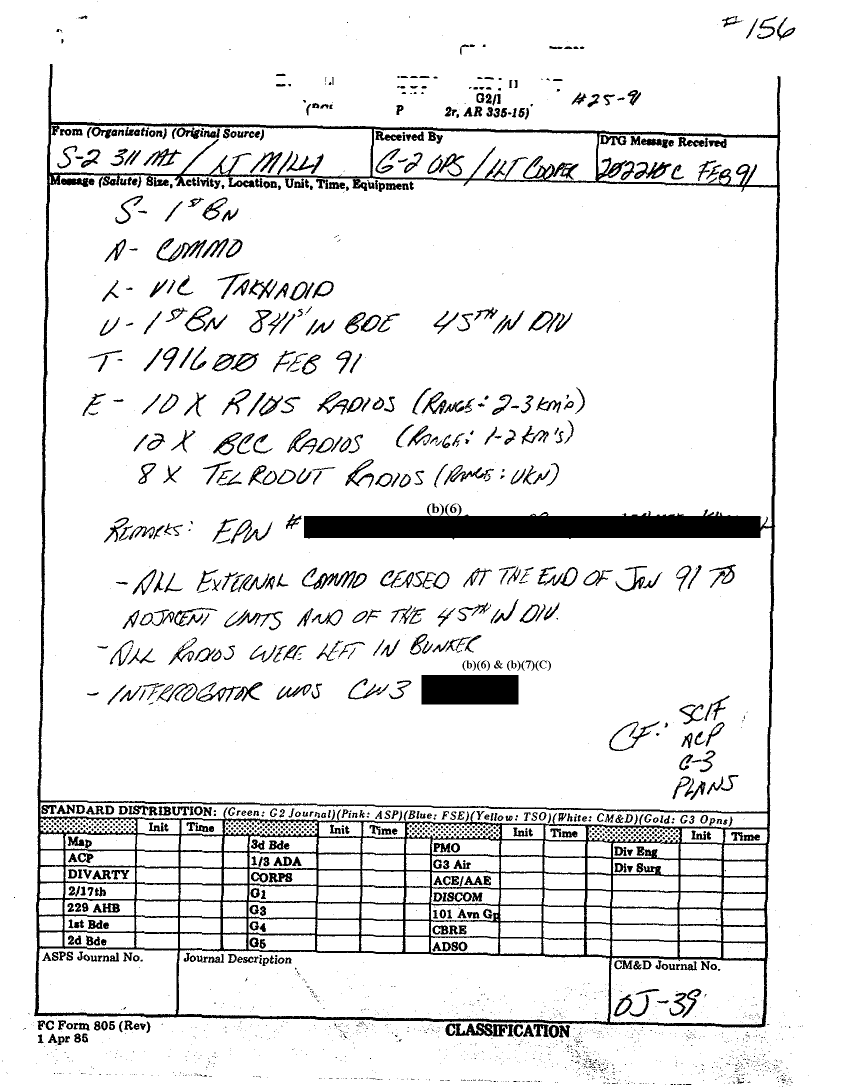 #156
G2/1
#25-91
P 2r, AR 335-15)
From (Organization) (Original Source)
Received By
DTG Message Received
S-2 311 MI / LT MILLI
G-2 OPS / 1LT COOPER
FEB 91
Message (Salute) Size, Activity, Location, Unit, Time, Equipment
S- 1st BN
A- COMMO
L- VIC TAKHADID
U- 1st BN 841st IN BDE 45TH IN DIV
T- 191600 FEB 91
E- 10 X R105 RADIOS (RANGE: 2-3 Km's)
12 X BCC RADIOS (RANGE: 1-2 Km's)
8 X TELRODUT RADIOS (RANGE: UKN)
(b)(6)
REMARKS: EPW #
- ALL EXTERNAL COMMO CEASED AT THE END OF JAN 91 TO
ADJACENT UNITS AND OF THE 45TH IN DIV.
- ALL RADIOS WERE LEFT IN BUNKER
(b)(6) & (b)(7)(C)
- INTERROGATOR WAS CW3
CF: SCIF
ACP
G-3
PLANS
STANDARD DISTRIBUTION: (Green: G2 Journal)(Pink: ASP)(Blue: FSE)(Yellow: TSO)(White: CM&D)(Gold: G3 Opns)
Init Time Init Time Init Time Init Time
Map 3d Bde PMO Div Eng
ACP 1/3 ADA G3 Air Div Surg
DIVARTY CORPS ACE/AAE
2/17th G1 DISCOM
229 AHB G3 101 Avn Gp
1st Bde G4 CBRE
2d Bde G5 ADSO
ASPS Journal No. Journal Description CM&D Journal No.
OJ-39
FC Form 805 (Rev)
1 Apr 85
CLASSIFICATION